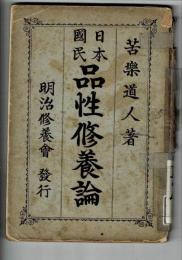 苦樂道人著
日本國民
品性修養論
明治修養會 發行